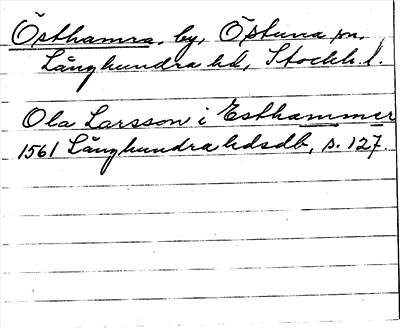 Östhamra, by, Östuna sn,
Långhundra hd, Stockh. l.
Ola Larsson i Esthammer
1561 Långhundra hdsdb, s. 127.